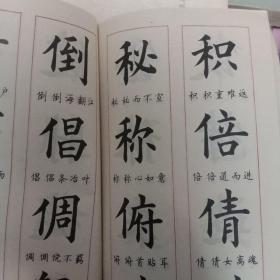 积
积 积重难返
倍
倍 倍道而进
倩
倩 倩女离魂
秘
秘 秘而不宣
称
称 称心如意
俯
俯 俯首贴耳
倒
倒 倒海翻江
倡
倡 倡条冶叶
倜
倜 倜傥不羁